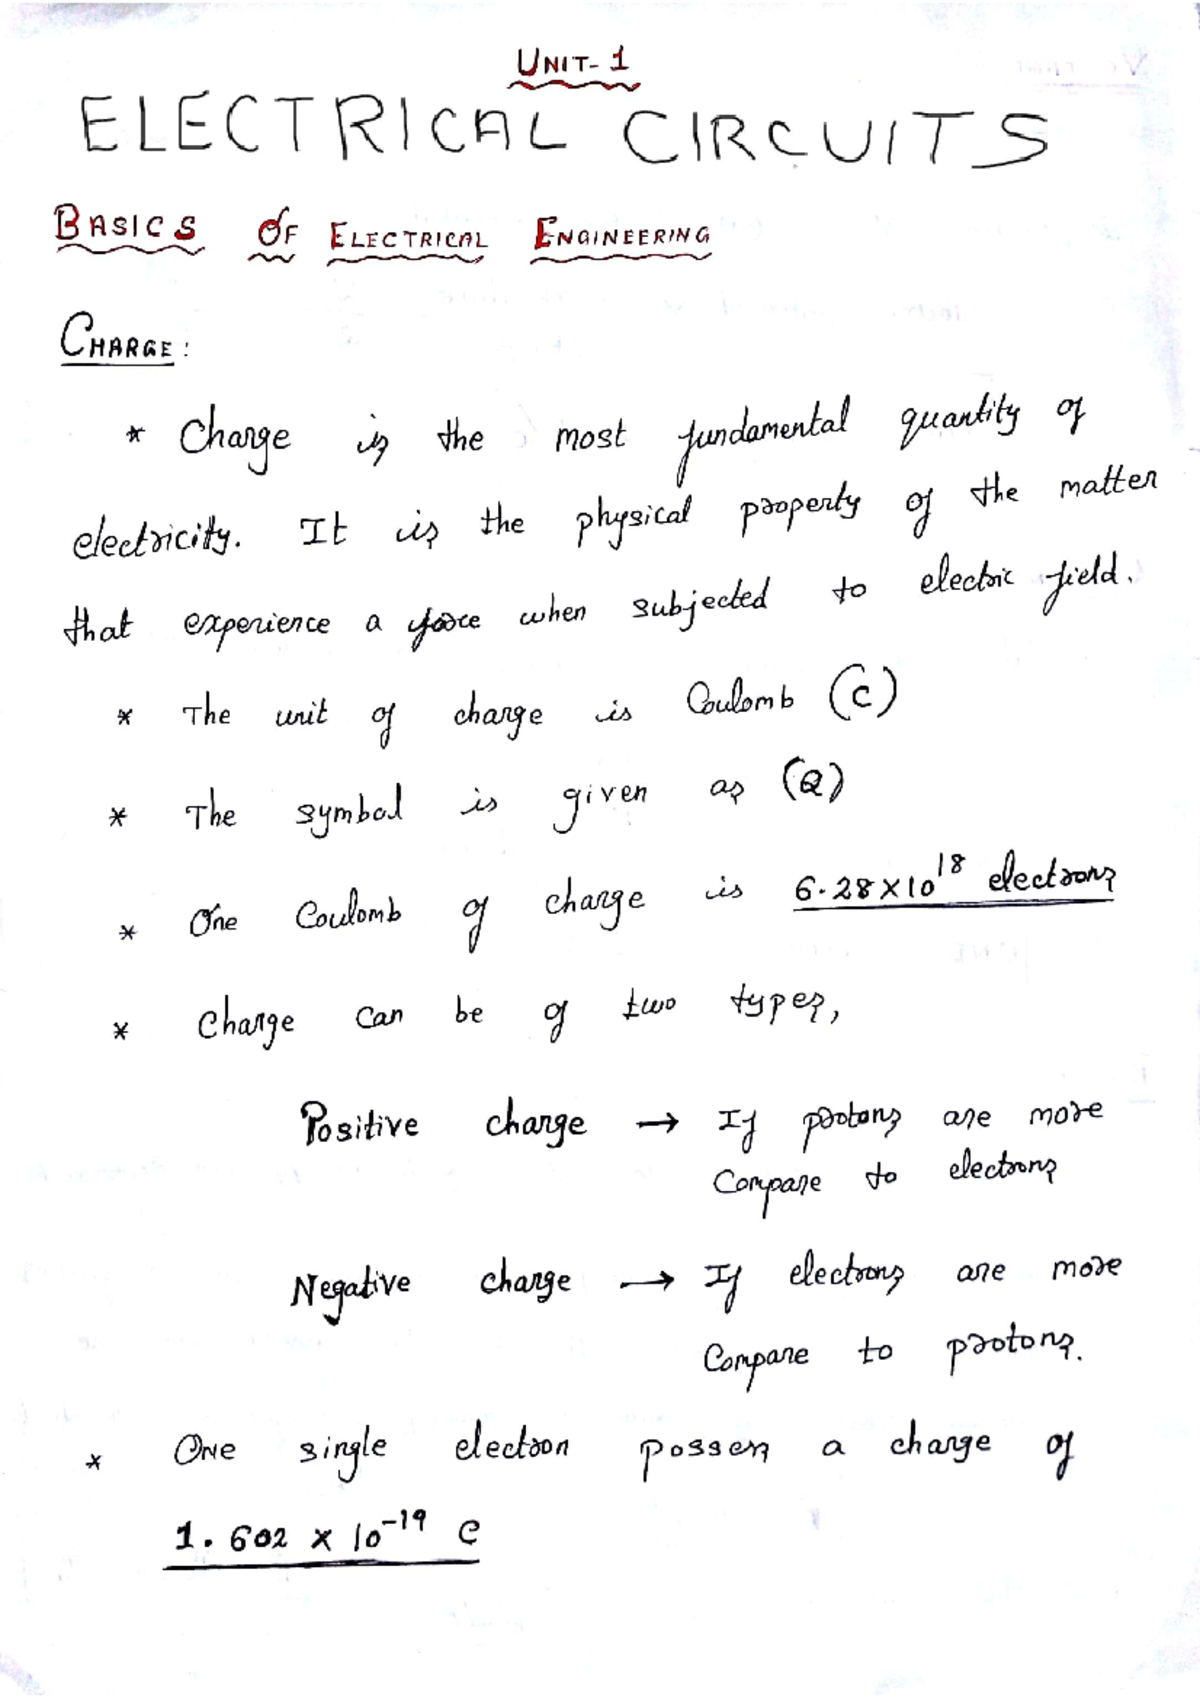 UNIT-1
ELECTRICAL CIRCUITS
BASICS OF ELECTRICAL ENGINEERING
CHARGE:
* Charge is the most fundamental quantity of
electricity. It is the physical property of the matter
that experience a force when subjected to electric field.
* The unit of charge is Coulomb (C)
* The symbol is given as (Q)
* One Coulomb of charge is 6.28×10^18 electrons
* Charge can be of two types,
Positive charge → If protons are more
Compare to electrons
Negative charge → If electrons are more
Compare to protons.
* One single electron possess a charge of
1.602 × 10^-19 C